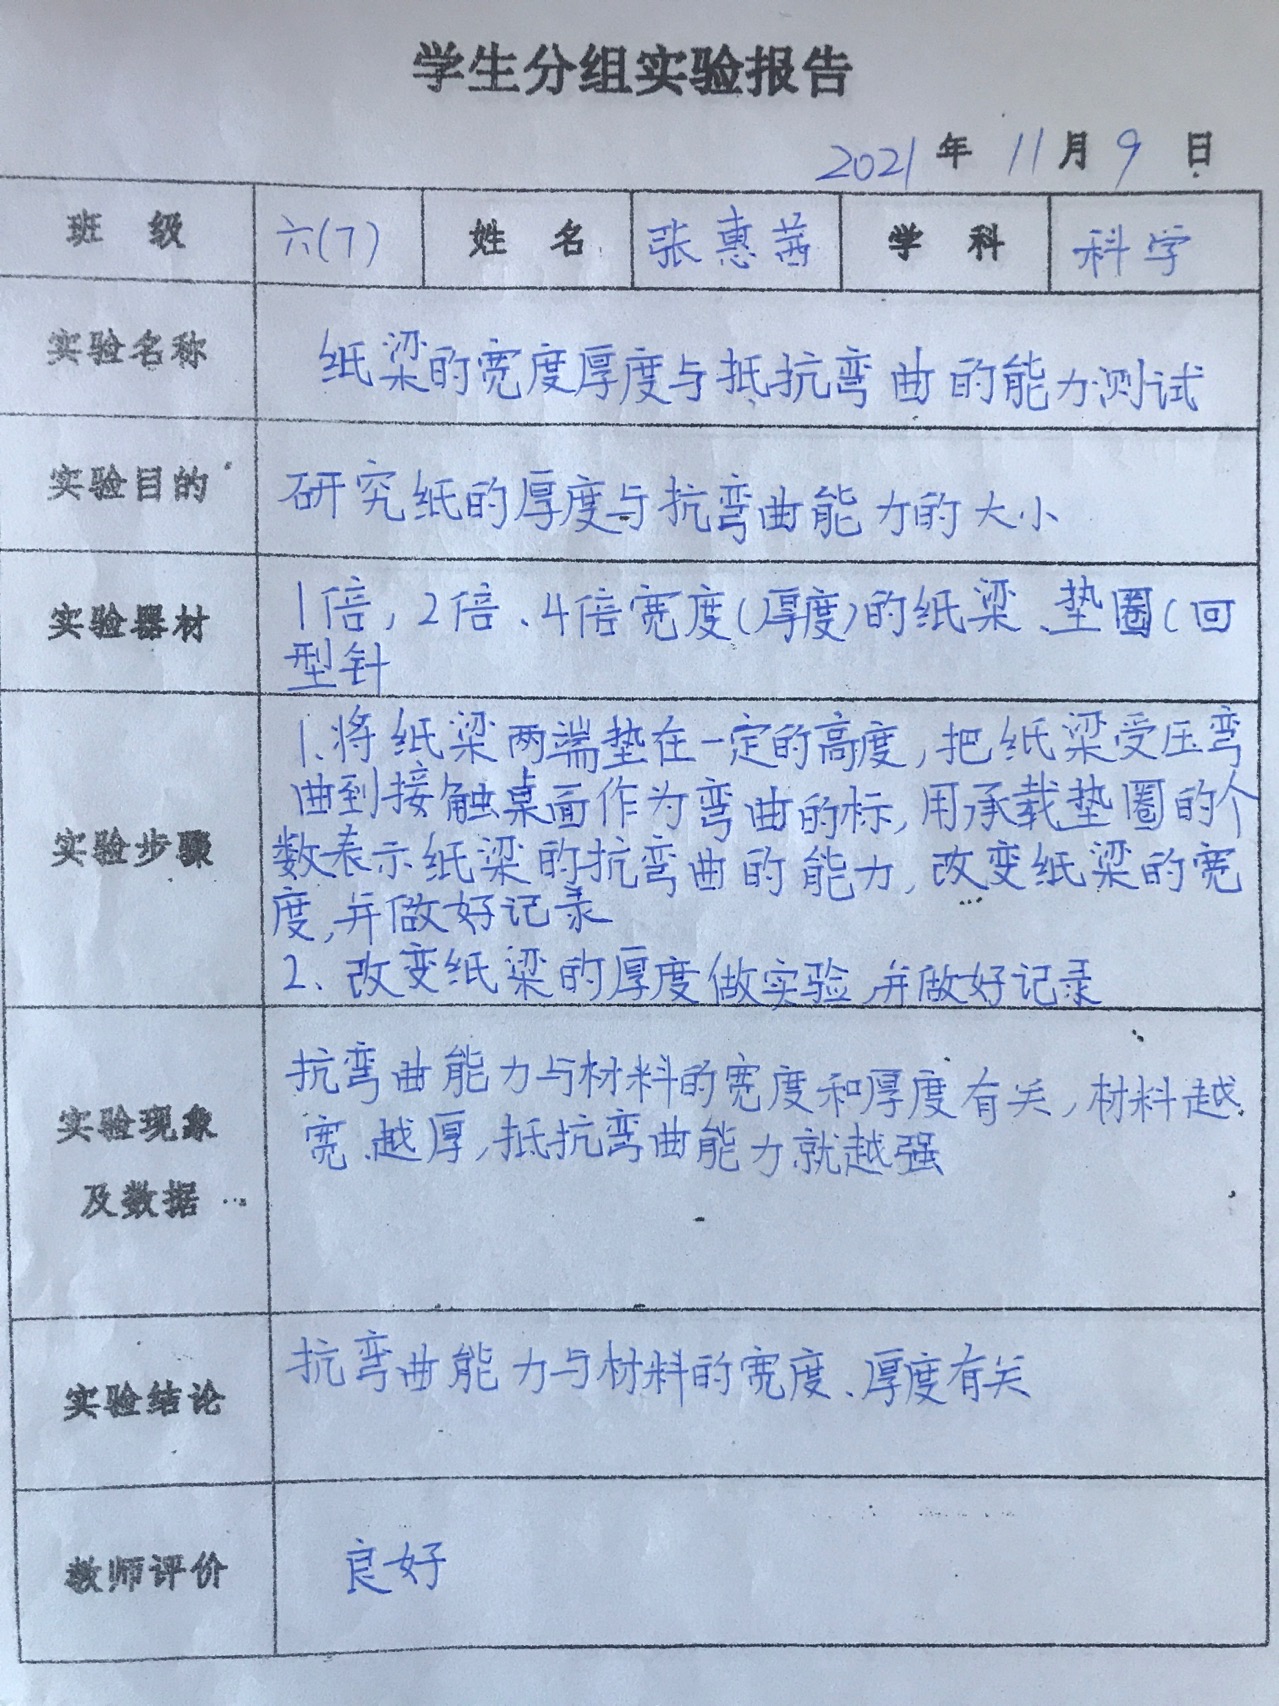 学生分组实验报告
2021年11月9日
班级 六(7) 姓名 张惠茜 学科 科学
实验名称 纸梁的宽度厚度与抵抗弯曲的能力测试
实验目的 研究纸的厚度与抗弯曲能力的大小
实验器材 1倍,2倍、4倍宽度(厚度)的纸梁、垫圈(回
型针
实验步骤 1、将纸梁两端垫在一定的高度,把纸梁受压弯
曲到接触桌面作为弯曲的标,用承载垫圈的个
数表示纸梁的抗弯曲的能力,改变纸梁的宽
度,并做好记录
2、改变纸梁的厚度做实验,并做好记录
实验现象
及数据
抗弯曲能力与材料的宽度和厚度有关,材料越
宽、越厚,抵抗弯曲能力就越强
实验结论 抗弯曲能力与材料的宽度、厚度有关
教师评价 良好